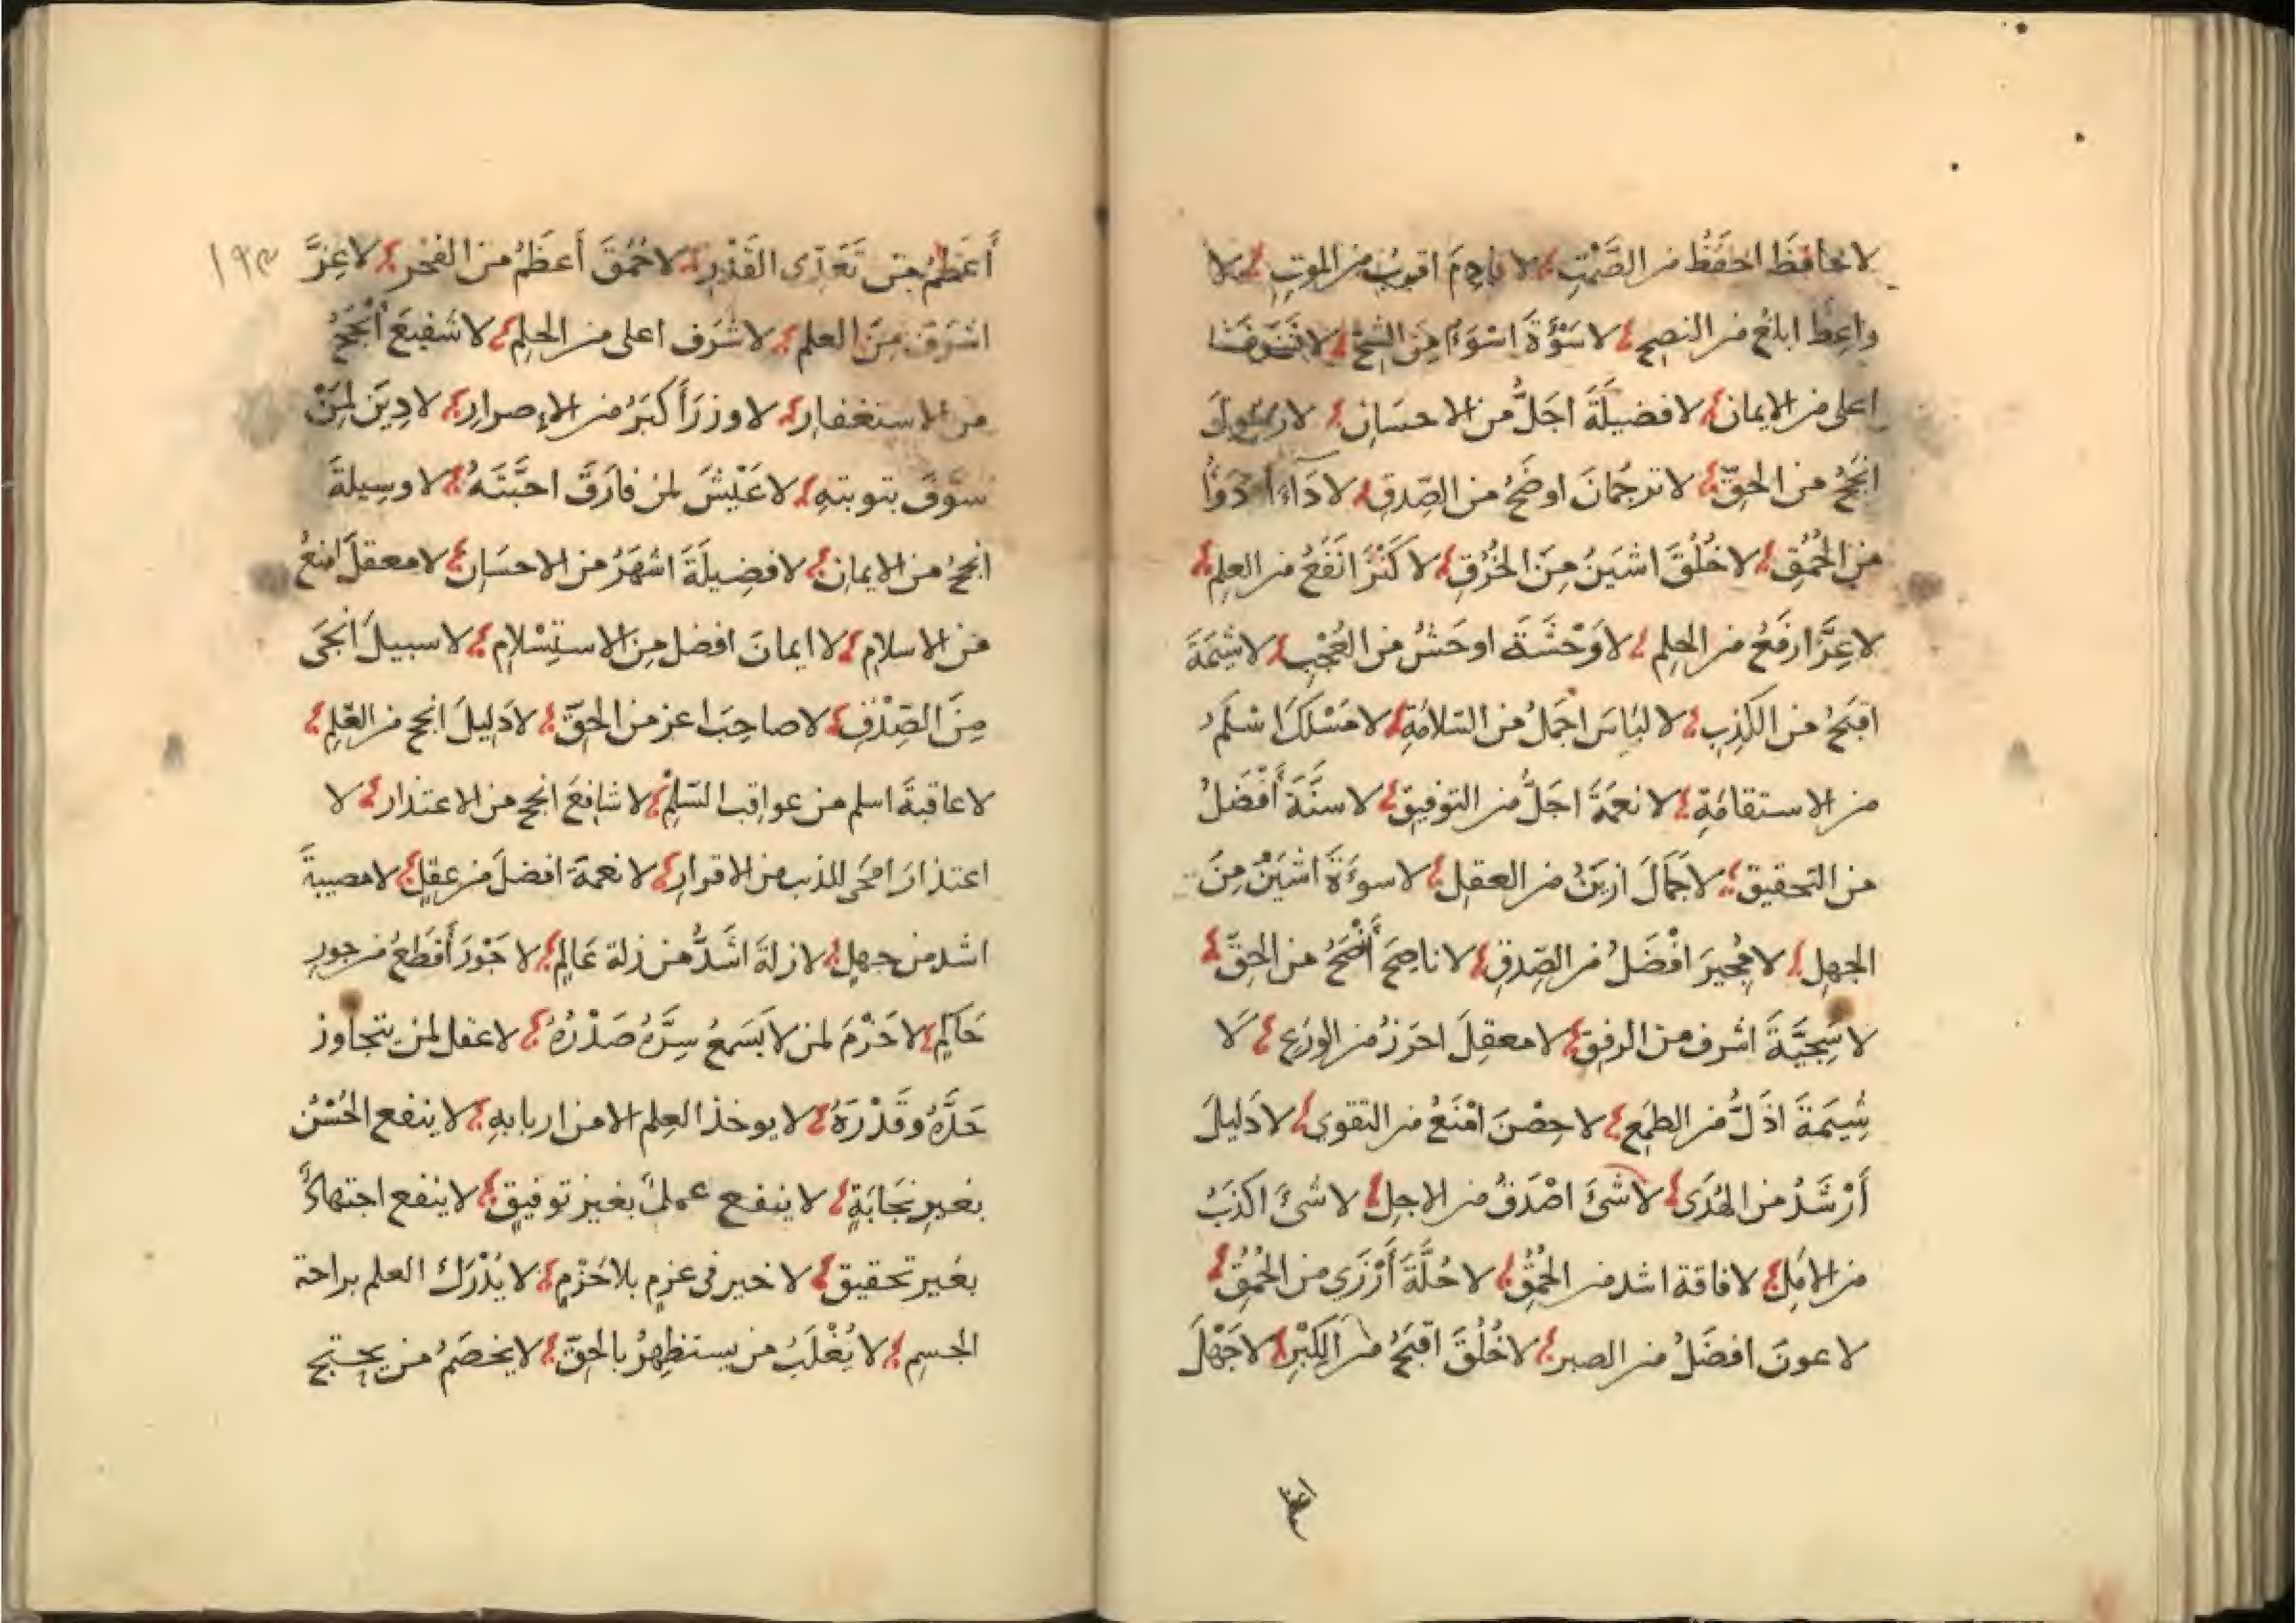 لا حافظَ احفَظُ من الصَّمْتِ لا قادِمَ اقربُ من الموتِ لا
واعِظَ ابلغُ من النصحِ لا سَوْءَةَ اسْوَءُ مِنَ الشُّحِّ لا شَرَفَ
اعلى من الايمانِ لا فضيلَةَ اجَلُّ من الاحسَانِ لا رسُولَ
انجَحُ من الحقِّ لا ترجُمَانَ اوضَحُ من الصِّدقِ لا دَاءَ ادَوَأُ
من الحُمُقِ لا خُلُقَ اشيَنُ مِنَ الخُرْقِ لا كَنْزَ انفَعُ من العلِمِ
لا عِزَّ ارفَعُ من الحِلِمِ لا وَحْشَةَ اوحَشُ من العُجْبِ لا شِيمَةَ
اقبَحُ من الكَذِبِ لا لبَاسَ اجمَلُ من السّلامَةِ لا مَسْلَكَ اسْلَمُ
من الاستقامَةِ لا نعمَةَ اجَلُّ من التوفيقِ لا سنَّةَ أفْضَلُ
من التحقيقِ لا جَمَالَ ازيَنُ من العقلِ لا سوءَةَ اشْيَنُ مِنَ
الجهلِ لا مُجيرَ افْضَلُ من الصِّدقِ لا ناصِحَ أَنْصَحُ من الحقِّ
لا سَجِيَّةَ اشرف من الرفقِ لا معقِلَ احرَزُ من الورَعِ لَا
شِيمَةَ اذَلُّ من الطمَعِ لا حِصْنَ امْنَعُ من التقوى لا دَليلَ
أَرْشَدُ من الهُدَى لا شئَ اصْدَقُ من الاجلِ لا شئَ اكذَبُ
من الامَلِ لا فاقة اشد من الحُمُقِ لا حُلَّةَ أَزْرَى من الحُمُقِ
لا عونَ افضَلُ من الصبرِ لا خُلُقَ اقبَحُ من الكِبْرِ لا جَهْلَ
أَعظَمُ من تَعَدِّى القَدْرِ لا حُمُقَ أَعظَمُ من الفخرِ لا عِزَّ
اشرَفَ مِنَ العلمِ لا شَرَف اعلى من الحِلمِ لا شَفيعَ أَنْجَحُ
من الاستغفارِ لا وزرَ أَكبَرُ من الإصرارِ لا دِينَ لِمَنْ
سوَّفَ بتوبتهِ لا عَيْشَ لمن فارَقَ احبَّتَهُ لا وسِيلةَ
انجحُ من الايمانِ لا فضِيلَةَ اشهَرُ من الاحسَانِ لا معقلَ امنعُ
من الاسلامِ لا ايمانَ افضل مِنَ الاستِسْلامِ لا سبيلَ انجَى
مِنَ الصِّدْقِ لا صاحِبَ اعز من الحقِّ لا دَليلَ انجح من العِلمِ
لا عاقبةَ اسلم من عواقب السّلْمِ لا شافِعَ انجح من الاعتذار لا
اعتذارَ امحَى للذنب من الاقرارِ لا نعمةَ افضلَ من عقلٍ لا مصيبةَ
اشد من جهلٍ لا زلةَ اشَدُّ من زلة عَالِمٍ لا جَوْرَ أَفظعُ من جورِ
حَاكِمٍ لا حَزْمَ لمن لا يَسَعُ سِرَّهُ صَدْرُهُ لا عقل لمن يتجاوز
حَدَّهُ وقَدْرَهُ لا يوخذ العِلم الا من اربابهِ لا ينفع الحُسْنُ
بغيرِ نجَابَةٍ لا ينفع عملٌ بغير توفيقٍ لا ينفع اجتهادٌ
بغير تحقيقٍ لا خير فى عزمٍ بلا حَزْمٍ لا يُدْرَكُ العلم براحة
الجسِمِ لا يُغْلَبُ من يستظهِرُ بالحقِّ لا يخصَمُ من يحتج